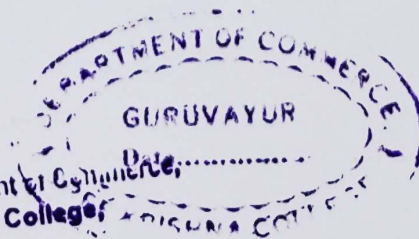 DEPARTMENT OF COMMERCE
GURUVAYUR
Date...............
College,
KRISHNA COLLEGE